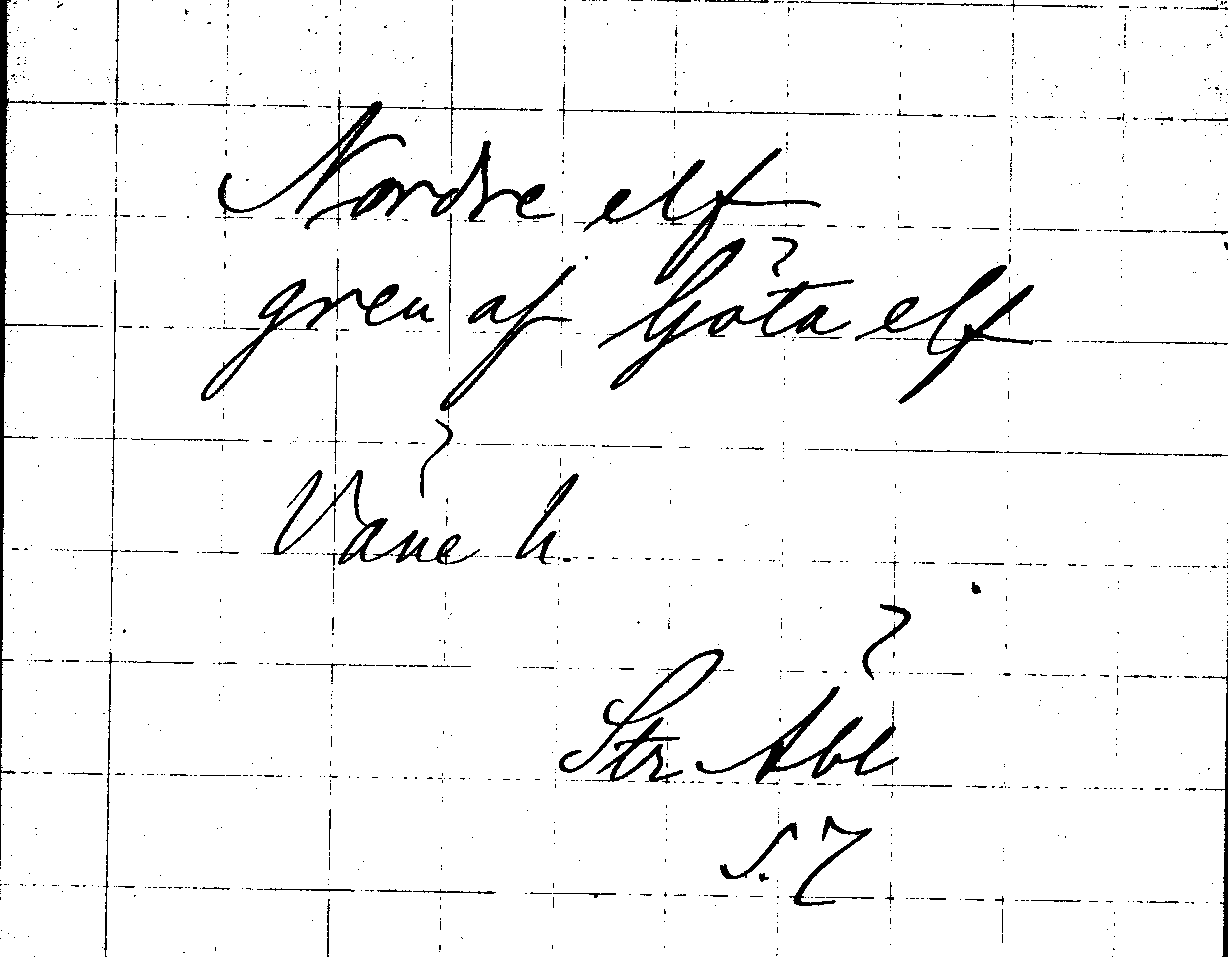 Nordre elf
gren af Göta elf
Våne h.
Str Åbl
s. 7